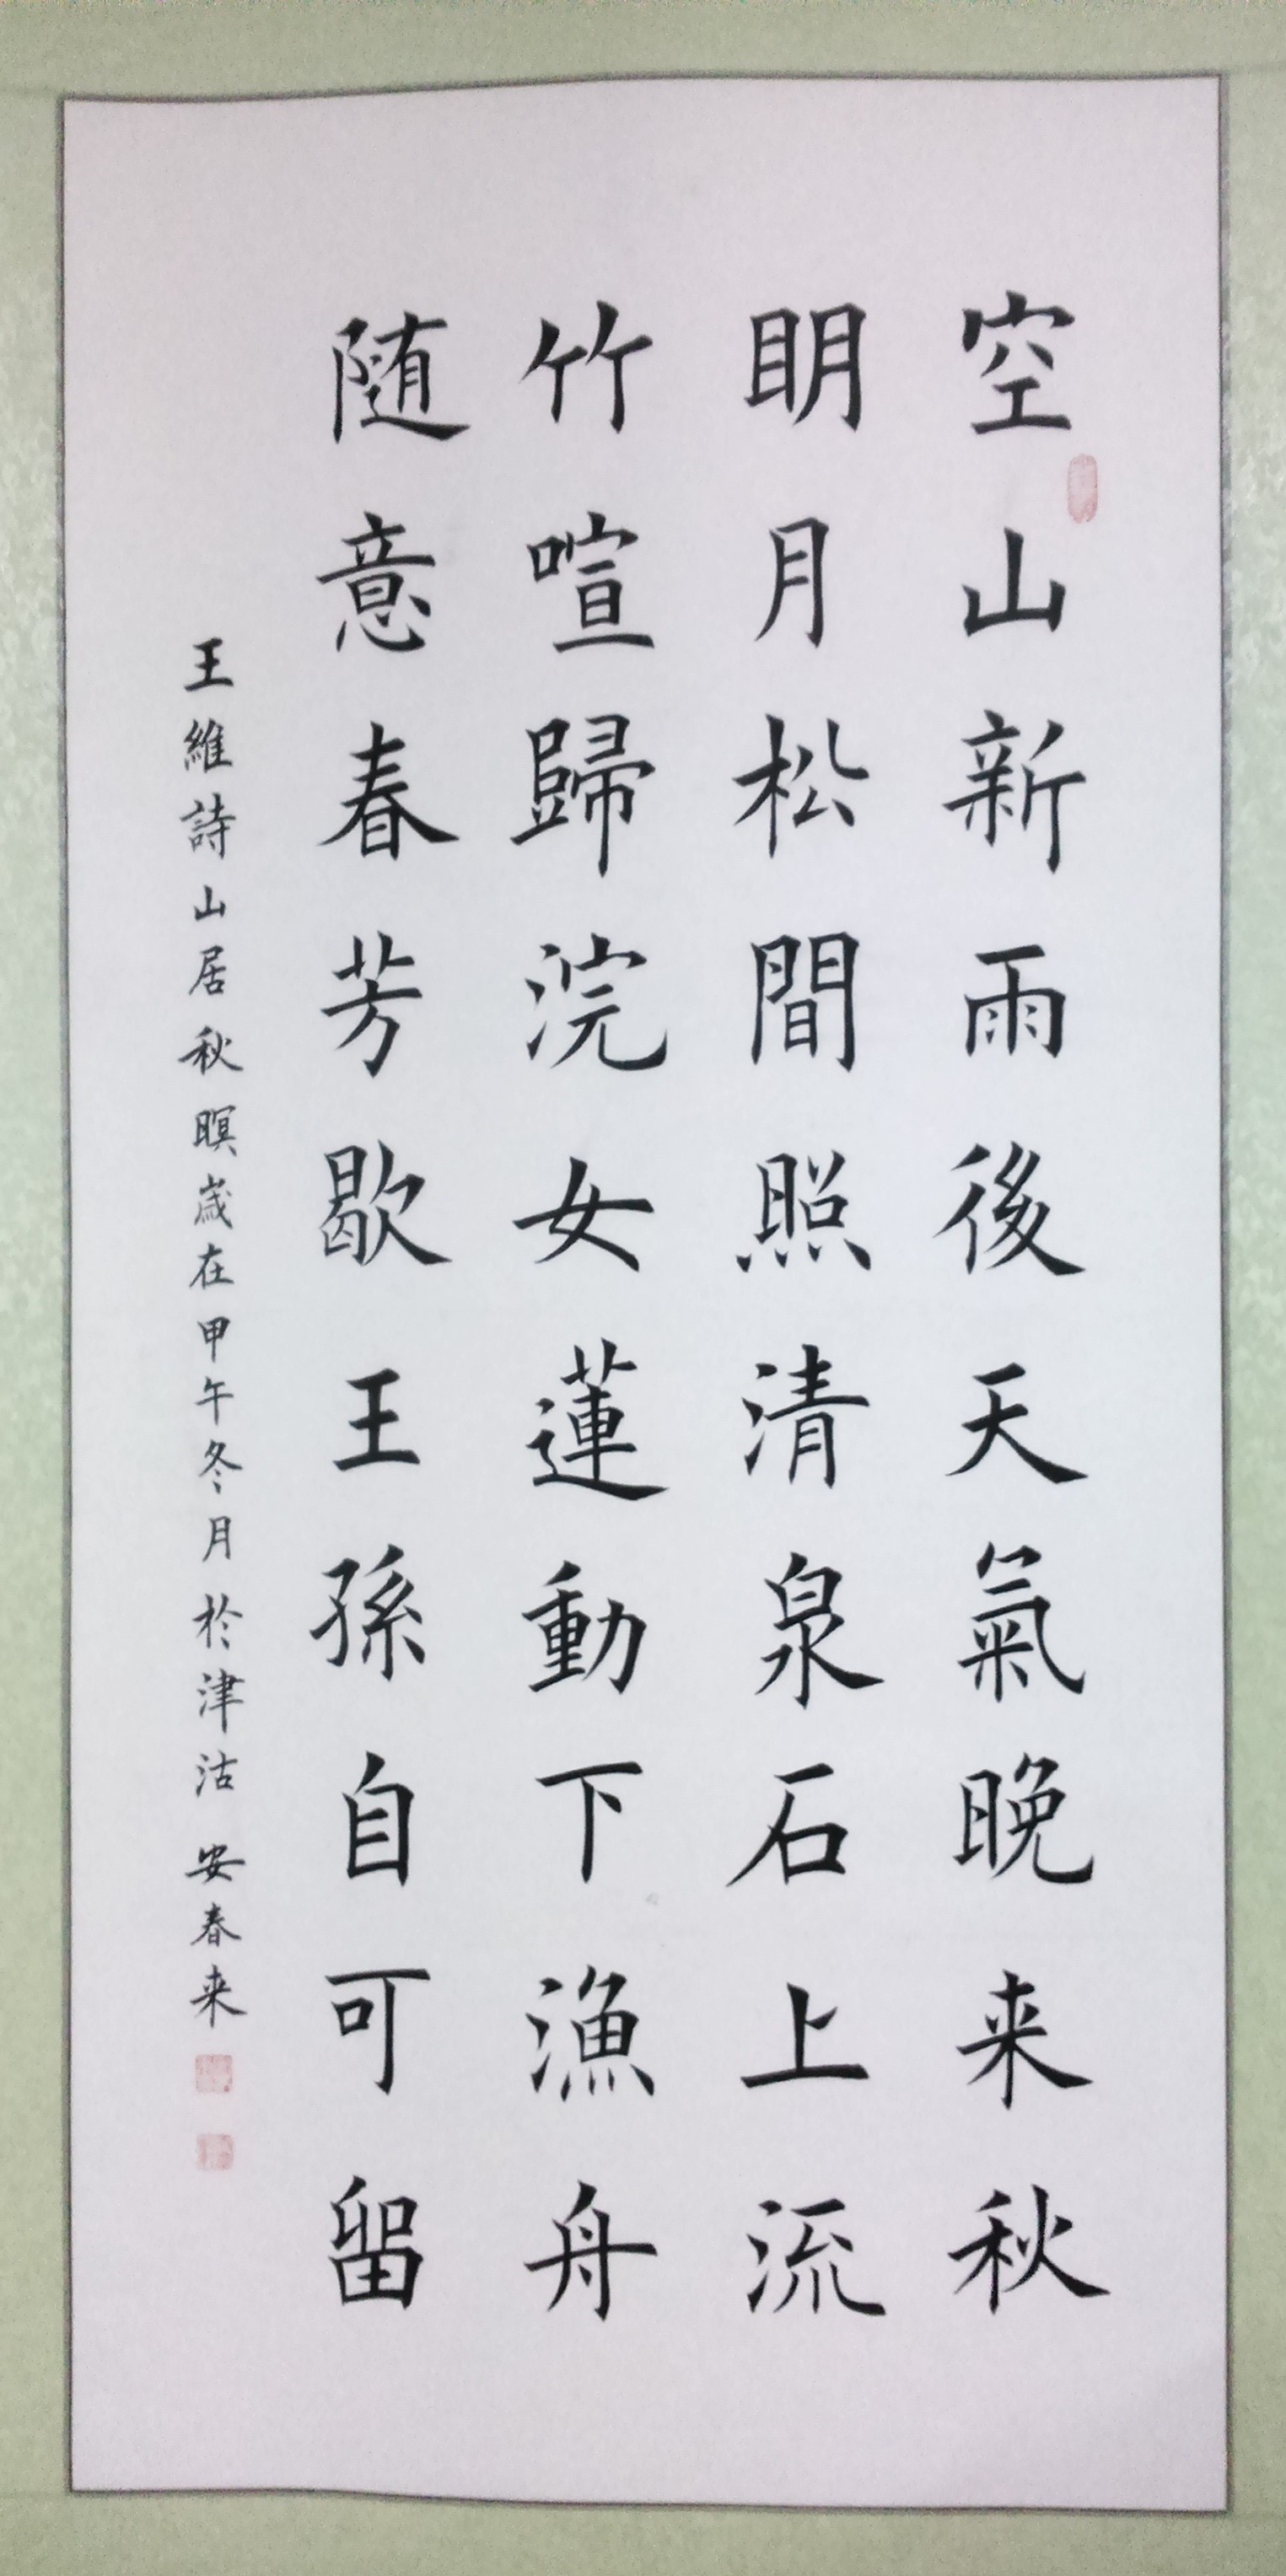 空山新雨後天氣晚来秋
明月松間照清泉石上流
竹喧歸浣女蓮動下漁舟
随意春芳歇王孫自可留
王維詩山居秋暝歲在甲午冬月於津沽 安春来